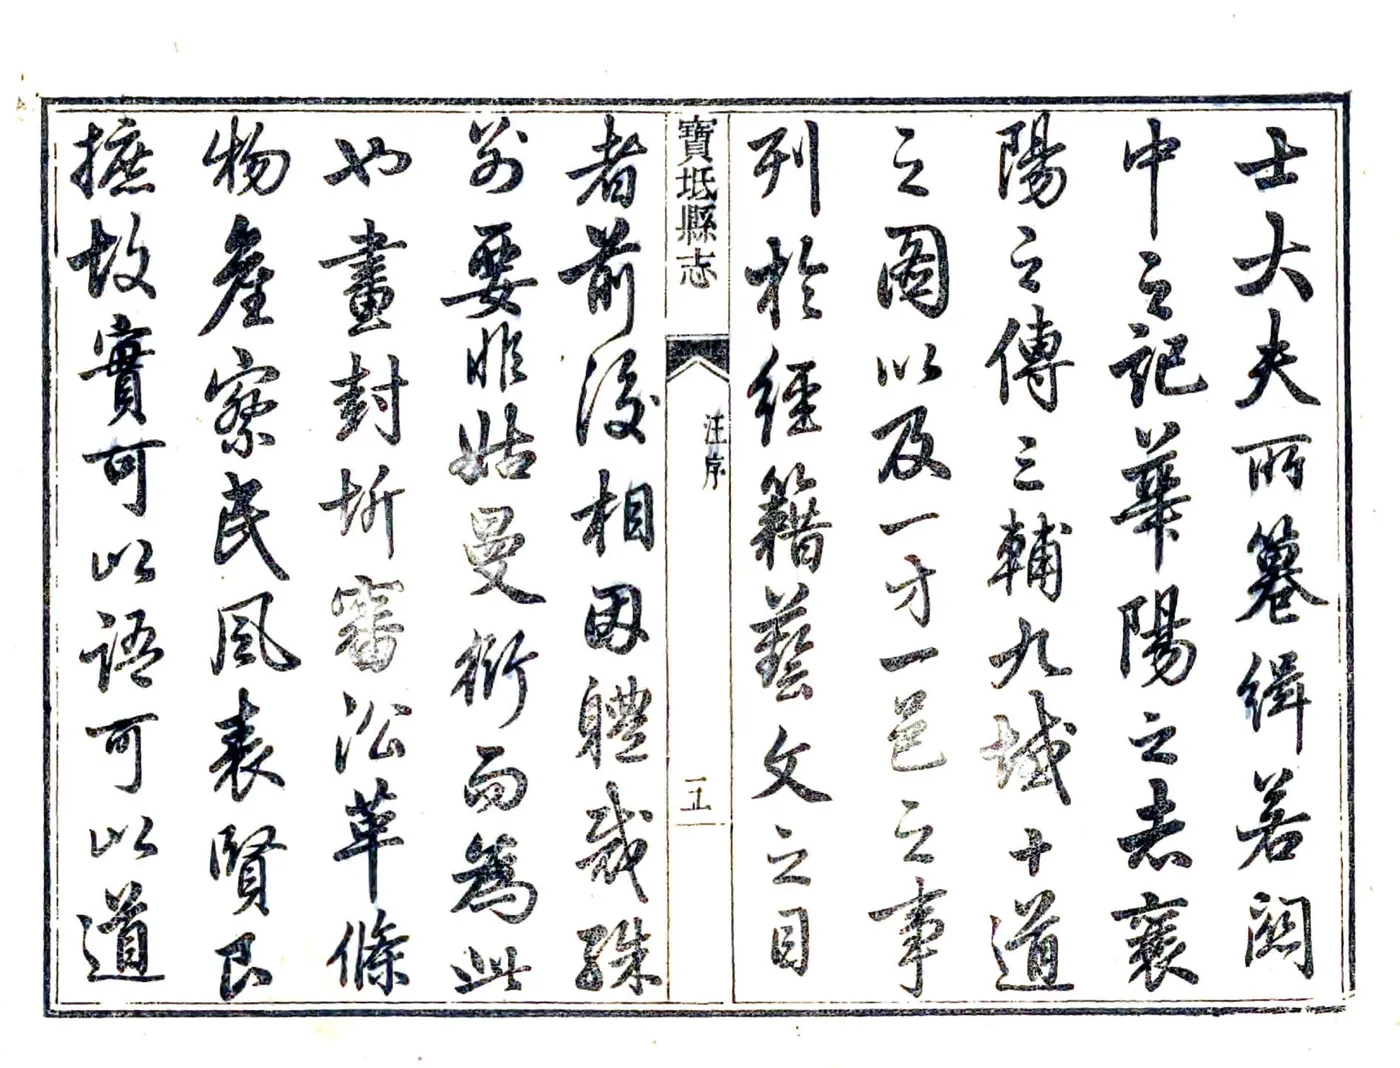 士大夫所篹緝若関
中之記華陽之志襄
陽之傳三輔九域十道
之圖以及一方一邑之事
列於經籍藝文之目
寶坻縣志
汪序
五
者前後相因體裁殊
別要非姑曼衍而為此
也畫封圻審沿革條
物產察民風表賢良
摭故實可以語可以道